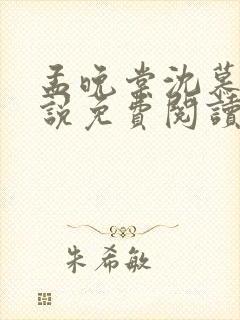 孟晚棠沈慕
說免費閱讀
朱希敏